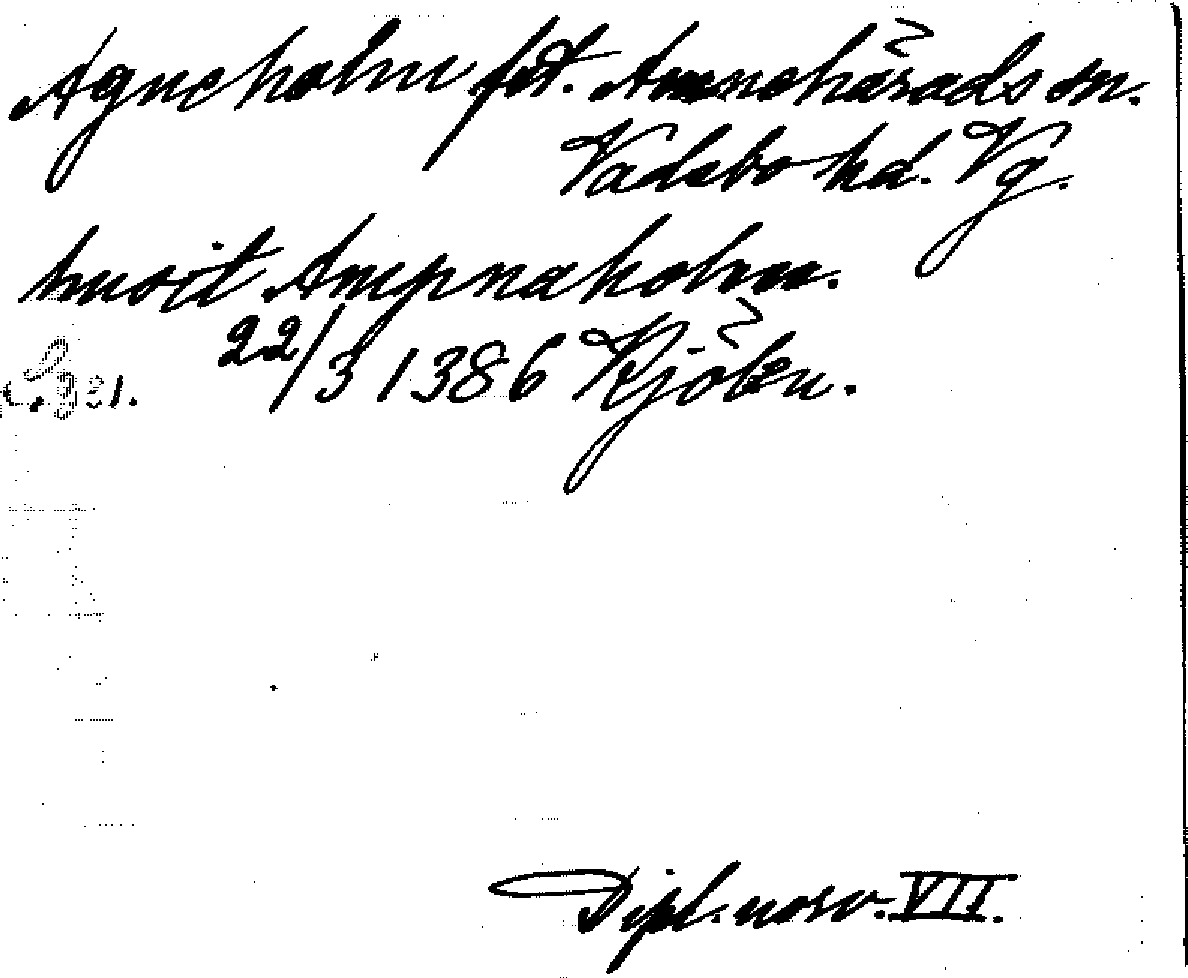 Agneholm fst. Amnehärads sn.
Vadsbo hd. Vg.
husit Ampnaholm.
22/3 1386 Kjöbn.
Dipl. norv. VII.